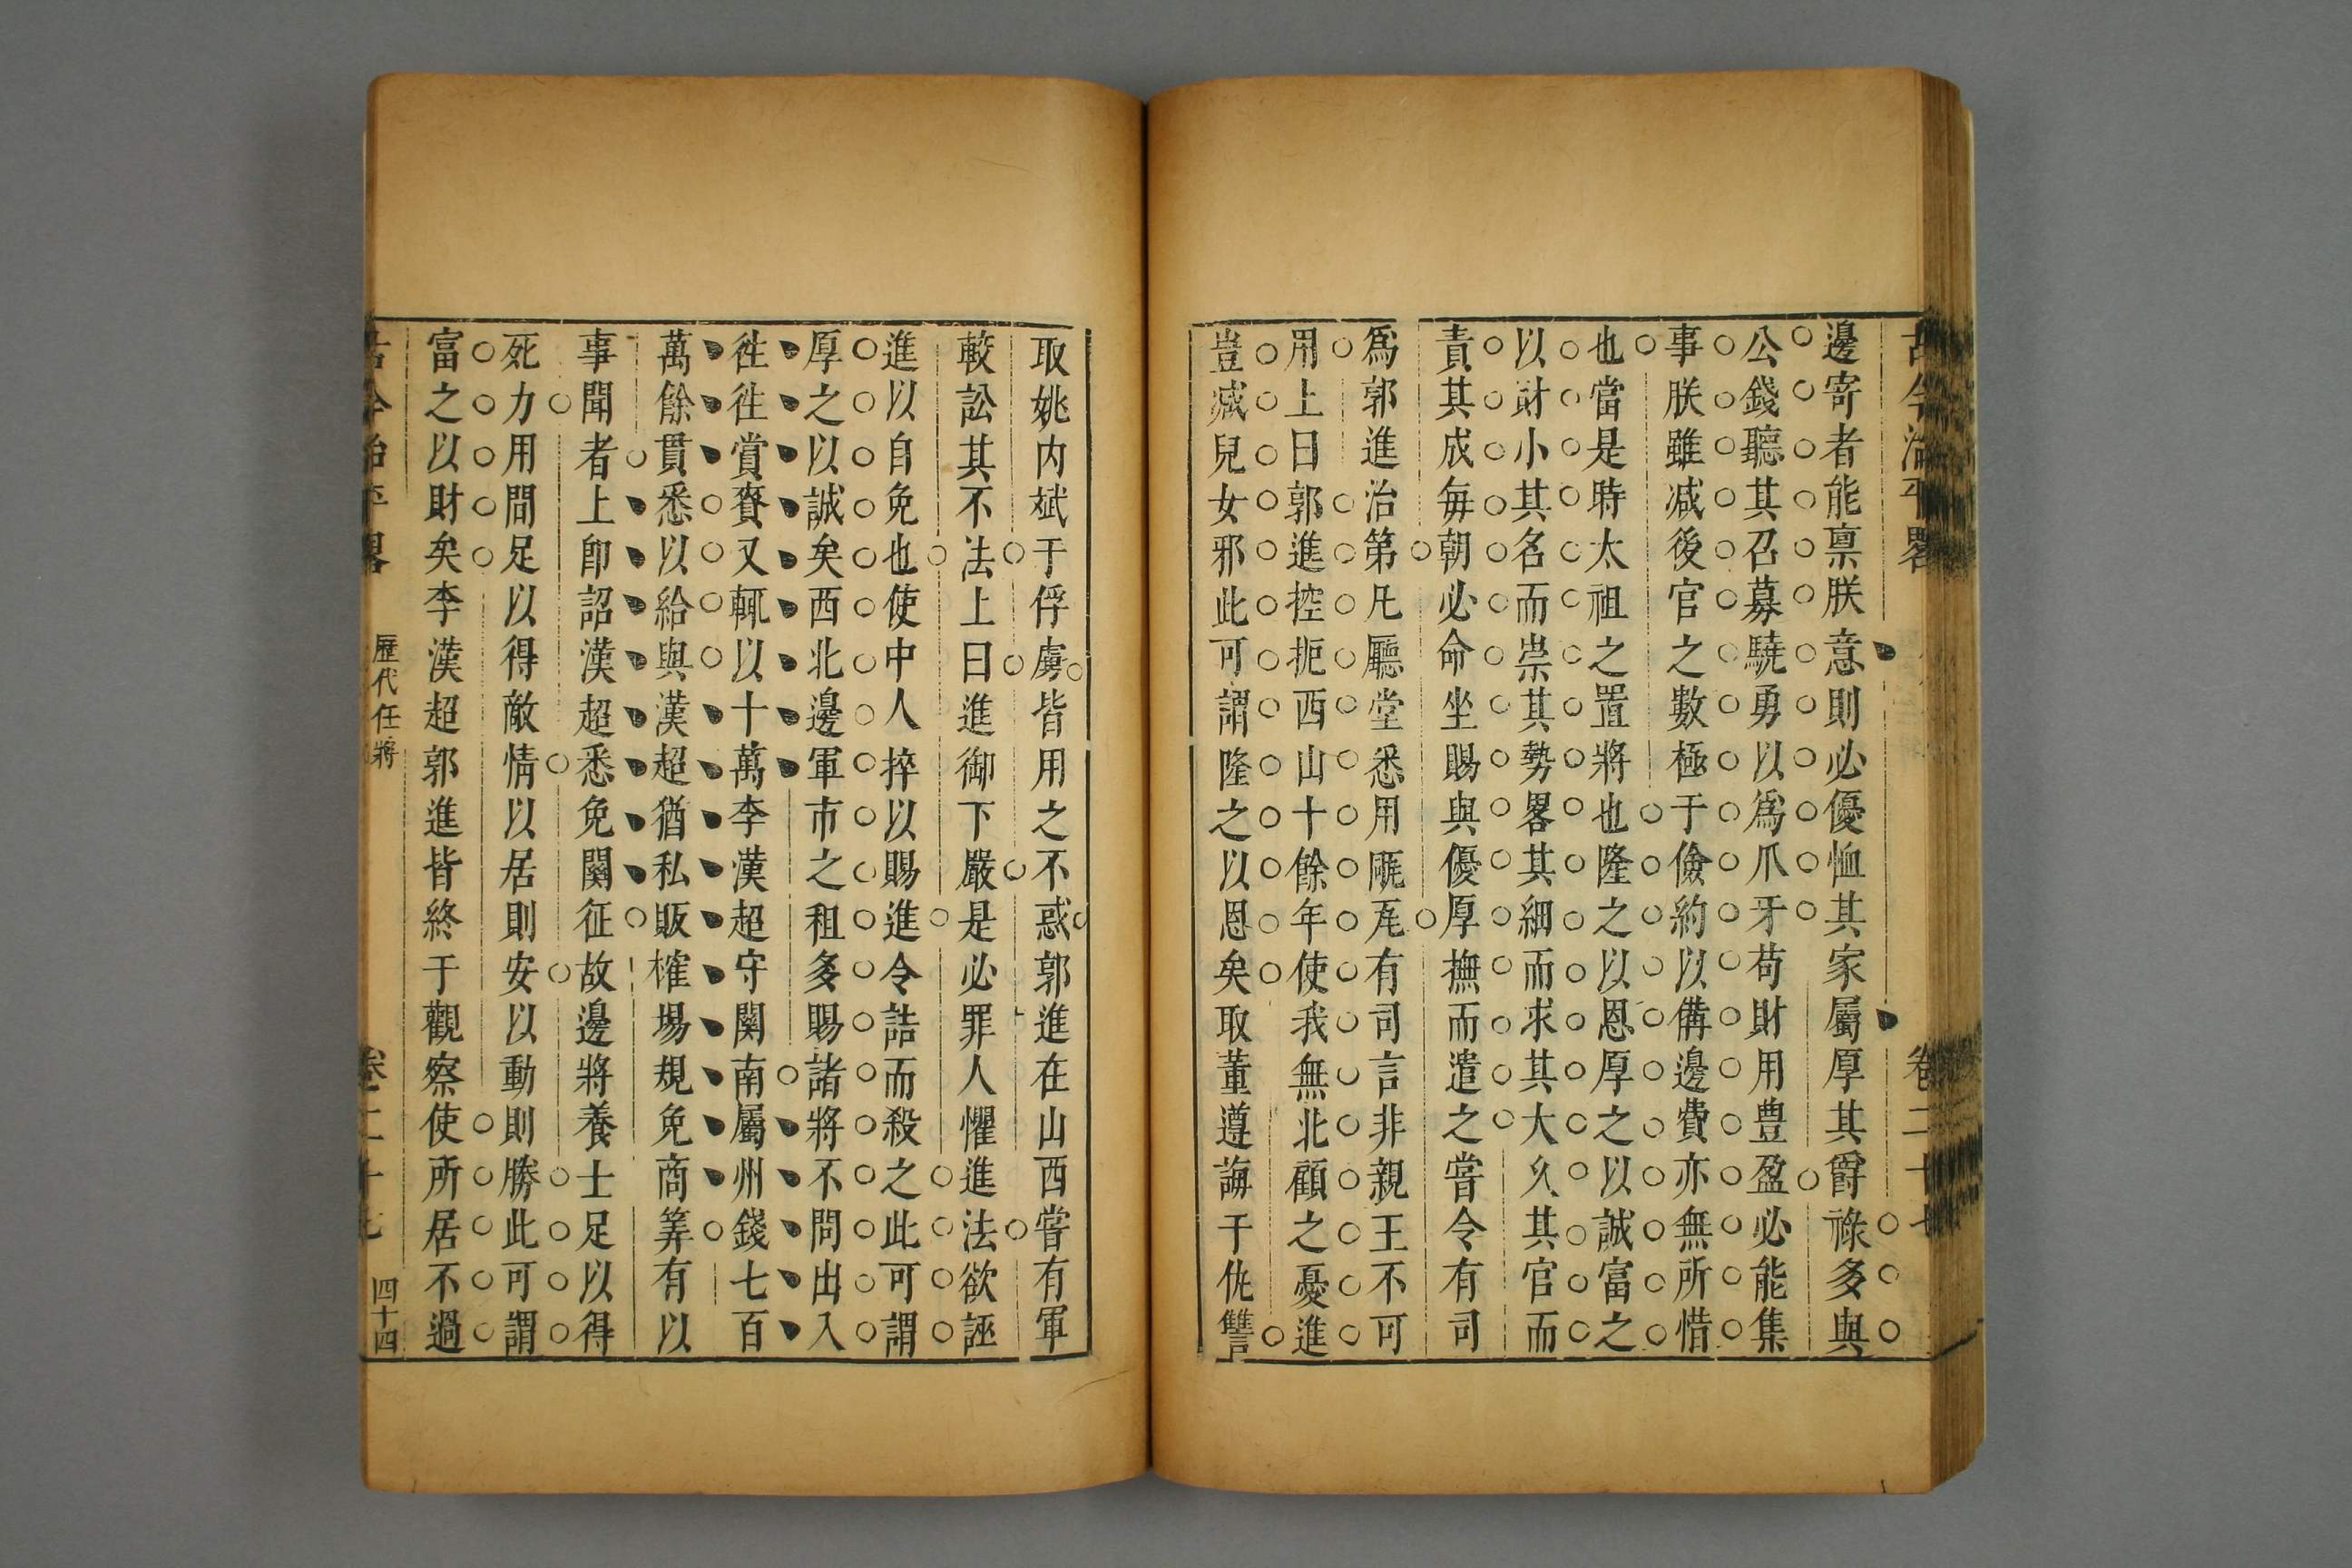 古今治平畧 卷二十七
邊寄者能禀朕意則必優恤其家屬厚其爵祿多與
公錢聽其召募驍勇以爲爪牙苟財用豊盈必能集
事朕雖减後宮之數極于儉約以備邊費亦無所惜
也當是時太祖之置將也隆之以恩厚之以誠富之
以財小其名而崇其勢畧其細而求其大久其官而
責其成每朝必命坐賜與優厚撫而遣之嘗令有司
爲郭進治第凡廳堂悉用㼧瓦有司言非親王不可
用上曰郭進控扼西山十餘年使我無北顧之憂進
豈减兒女邪此可謂隆之以恩矣取董遵誨于仇讐
取姚内斌于俘虜皆用之不惑郭進在山西嘗有軍
較訟其不法上曰進御下嚴是必罪人懼進法欲誣
進以自免也使中人捽以賜進令詰而殺之此可謂
厚之以誠矣西北邊軍市之租多賜諸將不問出入
徃徃賞賚又輒以十萬李漢超守関南屬州錢七百
萬餘貫悉以給與漢超猶私販榷場規免商筭有以
事聞者上卽詔漢超悉免関征故邊將養士足以得
死力用間足以得敵情以居則安以動則勝此可謂
富之以財矣李漢超郭進皆終于觀察使所居不過
古今治平畧 歷代任將 卷二十七 四十四